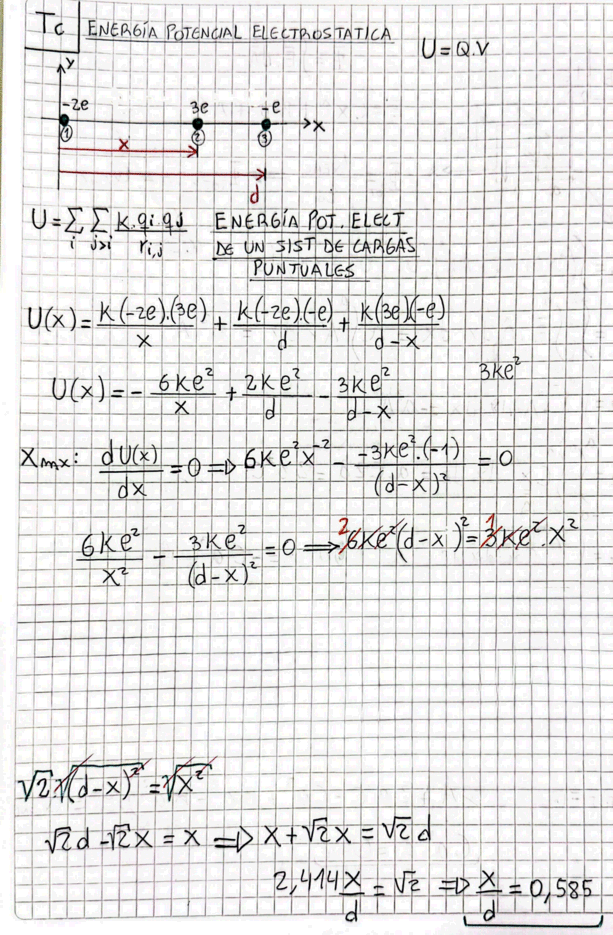 Tc ENERGÍA POTENCIAL ELECTROSTATICA U = Q.V
y
-2e 3e -e
① ② ③ x
x
d
U = Σ_i Σ_{j>i} k.qi.qj / r_{i,j} ENERGÍA POT. ELECT
DE UN SIST DE CARGAS
PUNTUALES
U(x) = k(-2e).(3e) / x + k(-2e)(-e) / d + k(3e)(-e) / d-x
3ke²
U(x) = - 6ke² / x + 2ke² / d - 3ke² / d-x
Xmax: dU(x) / dx = 0 ⇒ 6ke²x⁻² - -3ke².(-1) / (d-x)² = 0
6ke² / x² - 3ke² / (d-x)² = 0 ⇒ 2 6ke²(d-x)² = 1 3ke².x²
√2.√(d-x)² = √x²
√2d - √2x = x ⇒ x + √2x = √2d
2,414 x / d = √2 ⇒ x / d = 0,585